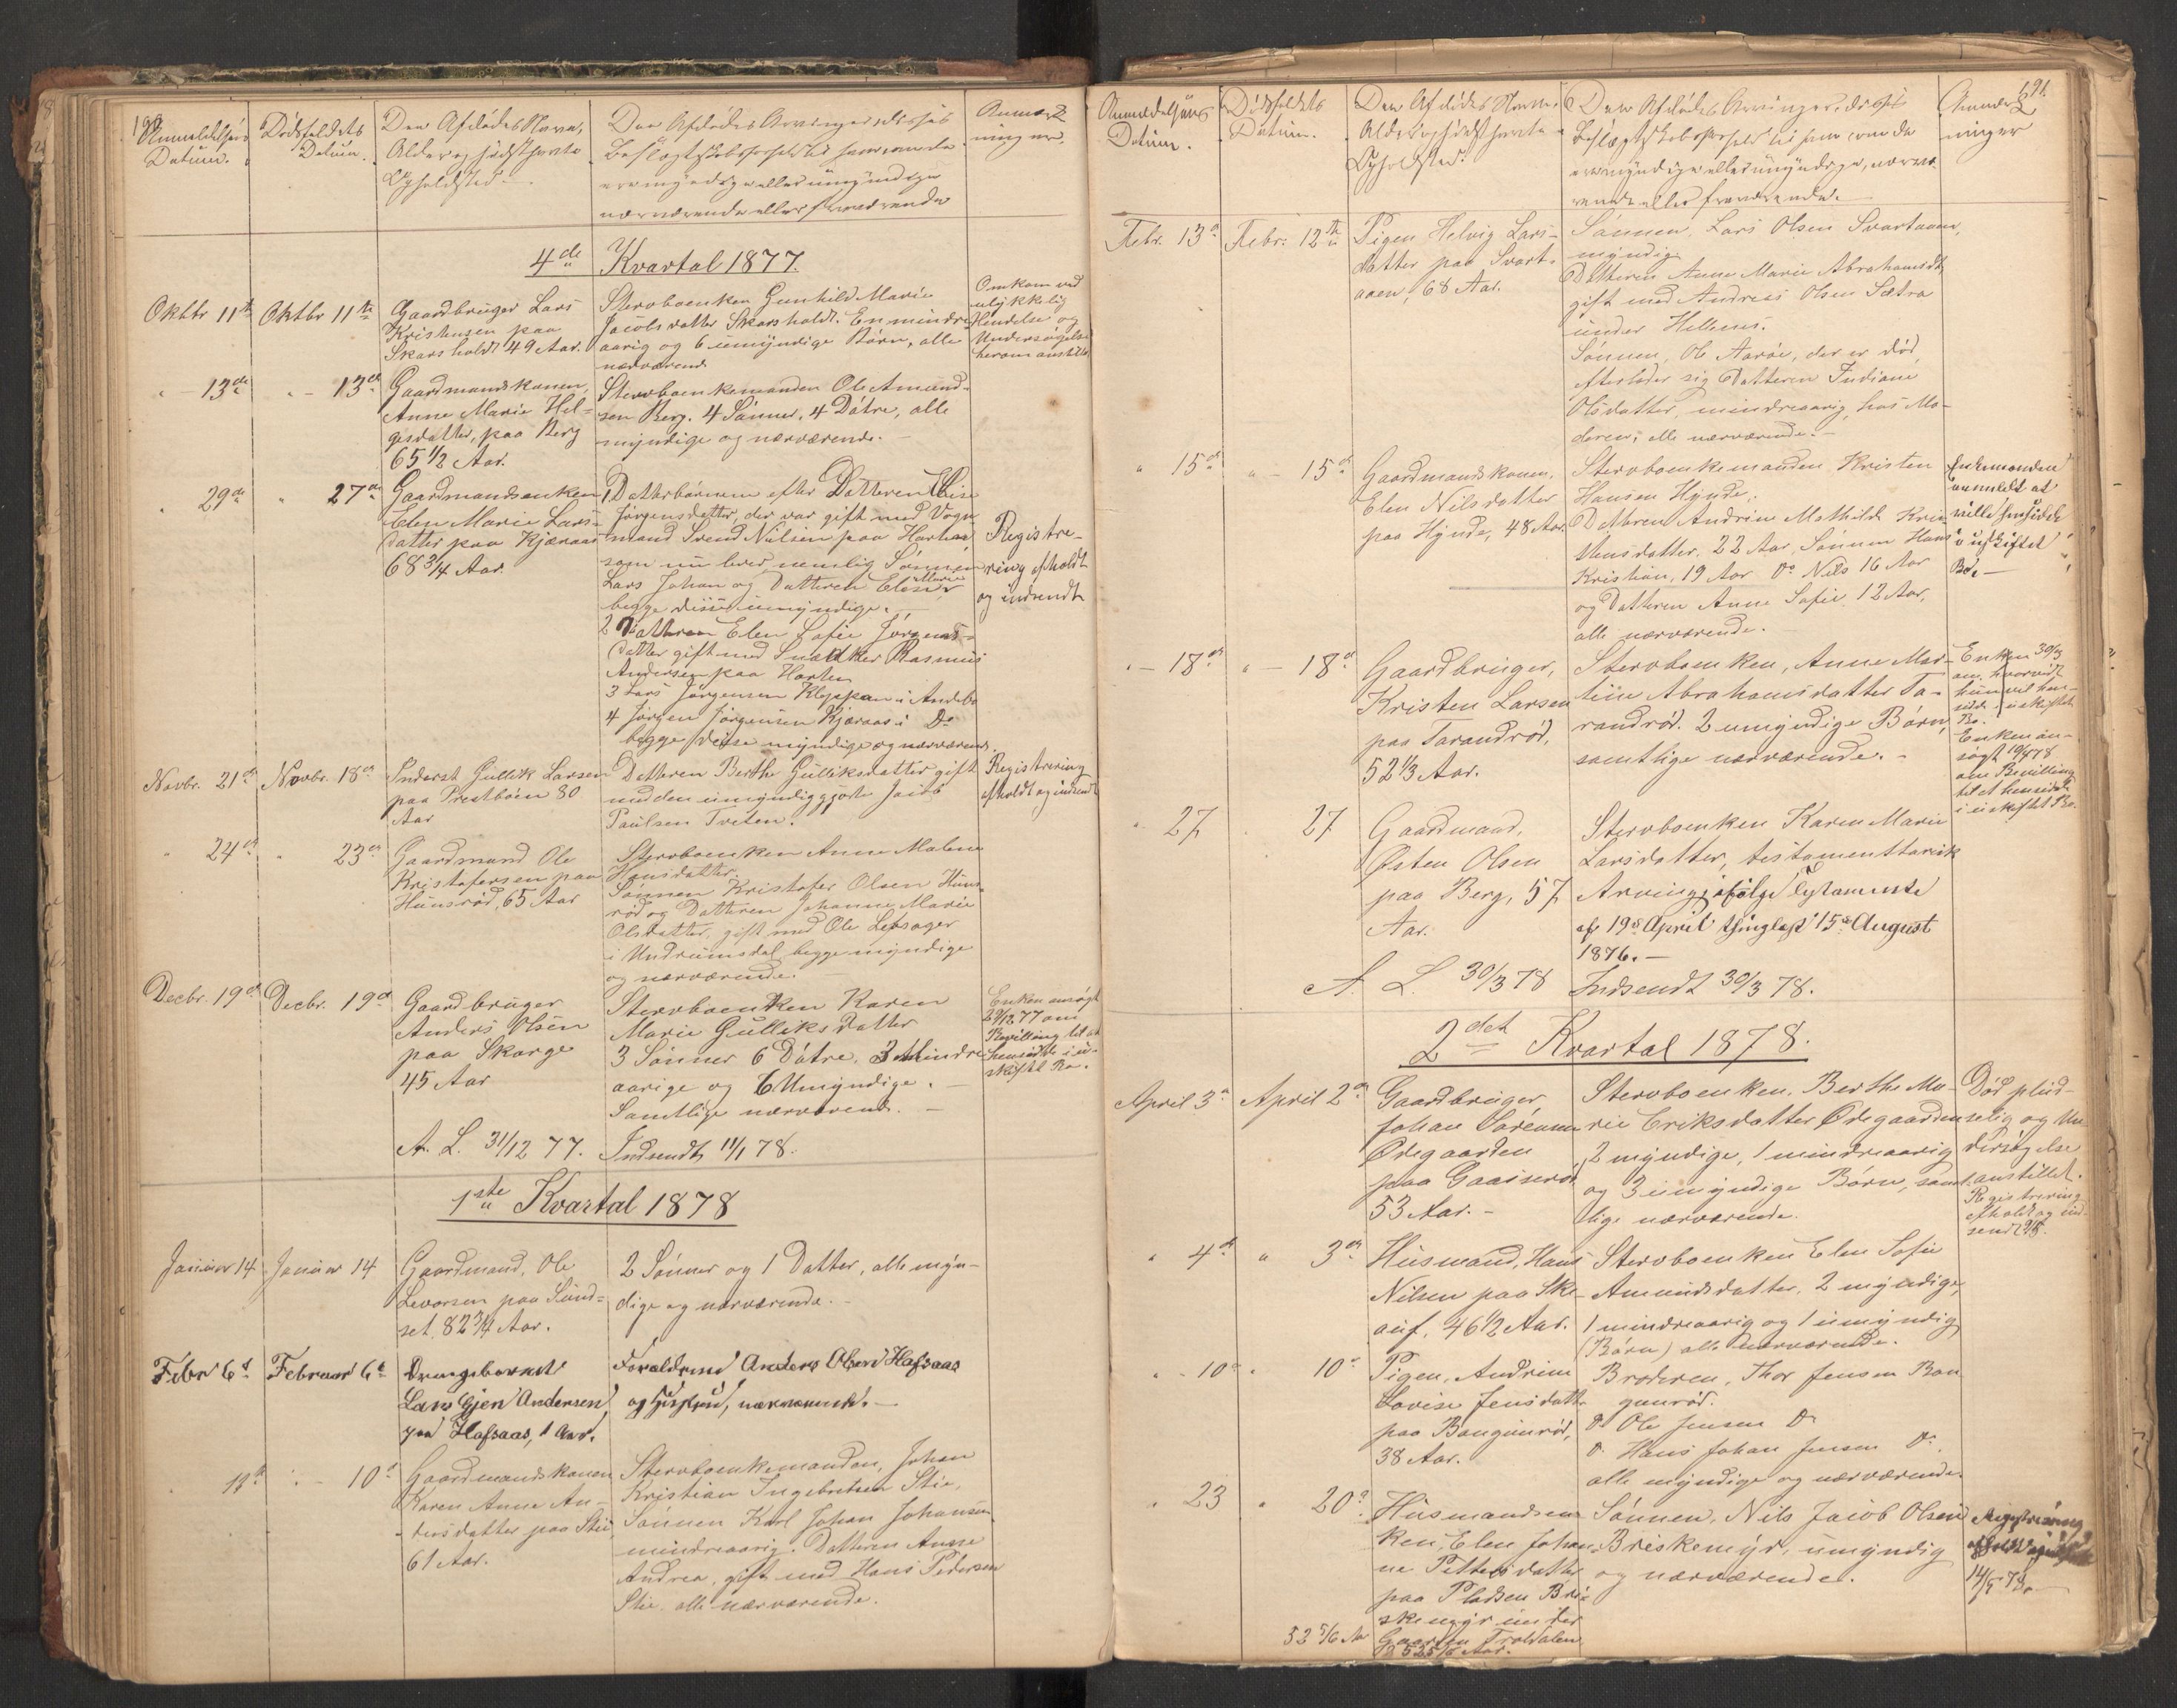 190
Anmeldelsens
Datum.
Dødsfaldets
Datum.
Den Afdødes Navn,
Alder og sidst havte
Opholdsted.
Den Afdødes Arvinger, disses
Beslægtskabsforhold til ham eller om de
ere myndige eller umyndige
nærværende eller fraværende
Anmærk
ninger.
4de Kvartal 1877.
Oktbr 11te
Oktbr 11te
Gaardbruger Lars
Kristensen paa
Skarsholdt 49 Aar.
Stervboenken Gunhild Marie
Jacobsdatter Skarsholdt. En mindre-
aarig og 6 umyndige Børn, alle
nærværende
Omkom ved
ulykkelig
Hendelse og
Undersøgelse
herom anstillet
" 13de
" - 13de
Gaardmandskonen,
Anne Marie Hel-
gesdatter, paa Berg
65 1/2 Aar.
Stervboenkemanden Ole Amund-
sen Berg. 4 Sønner, 4 Døtre, alle
myndige og nærværende. -
" 29de
" 27de
Gaardmandsenken
Elen Marie Lars-
datter paa Kjæraas
68 3/4 Aar.
1, Datterbørnene efter Datteren Elise
Jørgensdatter, der var gift med Vogn-
mand Svend Nilsen paa Horten,
som nu lever nemlig Sønnen
Lars Johan og Datteren Elise Marie
begge disse umyndige.
2 Datteren Elen Sofie Jørgens-
datter gift med Snædker Rasmus
Andersen paa Horten
3 Lars Jørgensen Kleppan i Andebo
4 Jørgen Jørgensen Kjæraas i Do
begge disse myndige og nærværende.
Registre-
ring afholdt
og indsendt
Novbr. 21de
Novbr. 18de
Inderst Gullik Larsen
paa Prestbøen 80
Aar
Datteren Berthe Gulliksdatter gift
med den umyndiggjorte Jacob
Paulsen Tveten.
Registrering
afholdt og indsendt
" 24de
" 23de
Gaardmand Ole
Kristofersen paa
Hunsrød, 65 Aar
Stervboenken Anne Malene
Hansdatter.
Sønnen Kristofer Olsen Huns-
rød og Datteren Johanne Marie
Olsdatter, gift med Ole Lefsager
i Undrumsdal begge myndige
og nærværende.
Decbr. 19de
Decbr. 19de
Gaardbruger
Anders Olsen
paa Skorge
45 Aar
Stervboenken Karen
Marie Gulliksdatter
3 Sønner 6 Døtre. 3 Mindre-
aarige og 6 Umyndige. -
Samtlige nærværende. -
Enken ansøgt
29/12 77 om
Bevilling til at
hensidde i u-
skiftet Bo.
A. L. 31/12 77. Indsendt 11/1 78.
1ste Kvartal 1878
Januar 14
Januar 14
Gaardmand, Ole
Levorsen paa Sund-
set. 82 3/4 Aar.
2 Sønner og 1 Datter, alle myn-
dige og nærværende. -
Febr 6te
Februar 6te
Drengebarnet
Lars Gjen Andersen
paa Hafsaas, 1 Aar.
Forældrene Anders Olsen Hafsaas
og Hustru, nærværende. -
" 11te
" - 10de
Gaardmandskonen
Karen Anne An-
dersdatter paa Stie
61 Aar.
Stervboenkemanden, Johan
Kristian Ingebretsen Stie,
Sønnen Karl Johan Johansen
mindreaarig. Datteren Anne
Andrea, gift med Hans Pedersen
Stie. alle nærværende.
191.
Anmeldelsens
Datum.
Dødsfaldets
Datum.
Den Afdødes Navn,
Alder og sidst havte
Opholdsted.
Den Afdødes Arvinger, disses
Beslægtskabsforhold til ham eller om de
ere myndige eller umyndige, nærvæ-
rende eller fraværende.
Anmærk
ninger
Febr. 13de
Febr. 12te
Pigen Helvig Lars-
datter paa Svart-
aaen, 68 Aar.
Sønnen, Lars Olsen Svartaaen,
myndig
Datteren Anne Marie Abrahamsdt
gift med Andreas Olsen Sætra
under Hellenes.
Sønnen, Ole Aarøe, der er død,
efterlader sig Datteren Indiane
Olsdatter, mindreaarig, hos Mo-
deren; alle nærværende. -
" 15de
" - 15de
Gaardmandskonen,
Elen Nilsdatter
paa Hynde, 48 Aar.
Stervboenkemanden Kristen
Hansen Hynde.
Datteren Andrine Mathilde Kris-
tensdatter. 22 Aar, Sønnen Hans
Kristian, 19 Aar Do Nils 16 Aar
og Datteren Anne Sofie 12 Aar,
alle nærværende. -
Enkemanden
anmeldt at
ville hensidde
i uskiftet
Bo. -
" - 18de
" - 18de
Gaardbruger,
Kristen Larsen
paa Tarandrød,
52 1/3 Aar.
Stervboenken, Anne Mar-
tine Abrahamsdatter Ta-
randrød. 2 umyndige Børn,
samtlige nærværende. -
Enken 30/3
om hvorvidt
hun vil hen-
sidde i uskiftet
Bo.
Enken an-
søgt 10/5 78
om Bevilling
til at hensidde
i uskiftet Bo.
" 27
" 27
Gaardmand,
Østen Olsen
paa Berg, 57
Aar.
Stervboenken Karen Marie
Larsdatter, testamentarisk
Arving ifølge Testamente
af 19de April thinglæst 15de August
1876. -
A. L. 30/3 78 Indsendt 30/3 78.
2det Kvartal 1878.
April 3de
April 2den
Gaardbruger
Johan Sørensen
Ødegaarden
paa Gaaserød,
53 Aar. -
Stervboenken. Berthe Ma-
rie Eriksdatter Ødegaarden
2 myndige, 1 mindreaarig
og 3 umyndige Børn, samt-
lige nærværende.
Død plud-
selig og Un-
dersøgelse
anstillet.
Registrering
afholdt og ind-
sendt
" 4de
" 3de
Husmand, Hans
Nilsen paa Ske-
auf, 46 1/2 Aar.
Stervboenken Elen Sofie
Amundsdatter, 2 myndige,
1 mindreaarig og 1 umyndig
(Børn) alle nærværende.
" - 10de
" 10de
Pigen, Andrine
Lovise Jensdatter
paa Baugunrød,
38 Aar.
Broderen, Thor Jensen Bau-
gunrød.
Do Ole Jensen Do
Do Hans Johan Jensen Do.
alle myndige og nærværende.
" 23
" 20de
Husmandsen-
ken, Elen Johan-
ne Pettersdatter
paa Pladsen Bri-
skemyr under
Gaarden Troldalen
52 5/6 Aar.
52 5/6 Aar
Sønnen, Nils Jacob Olsen
Briskemyr, umyndig
og nærværende.
Registrering
afholdt og indsendt
14/5 78.